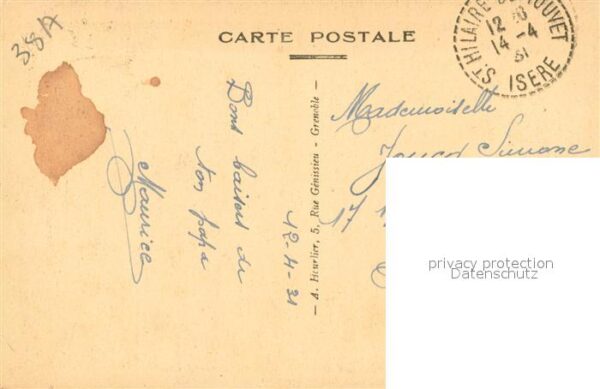 38A
CARTE POSTALE
ST HILAIRE DU TOUVET
12
14 -4
31
ISERE
Bons baisers de
ton papa
12-4-31
Maurice
— A. Heurlier, 5, Rue Génissieu - Grenoble —
Mademoiselle
Simone
17
privacy protection
Datenschutz